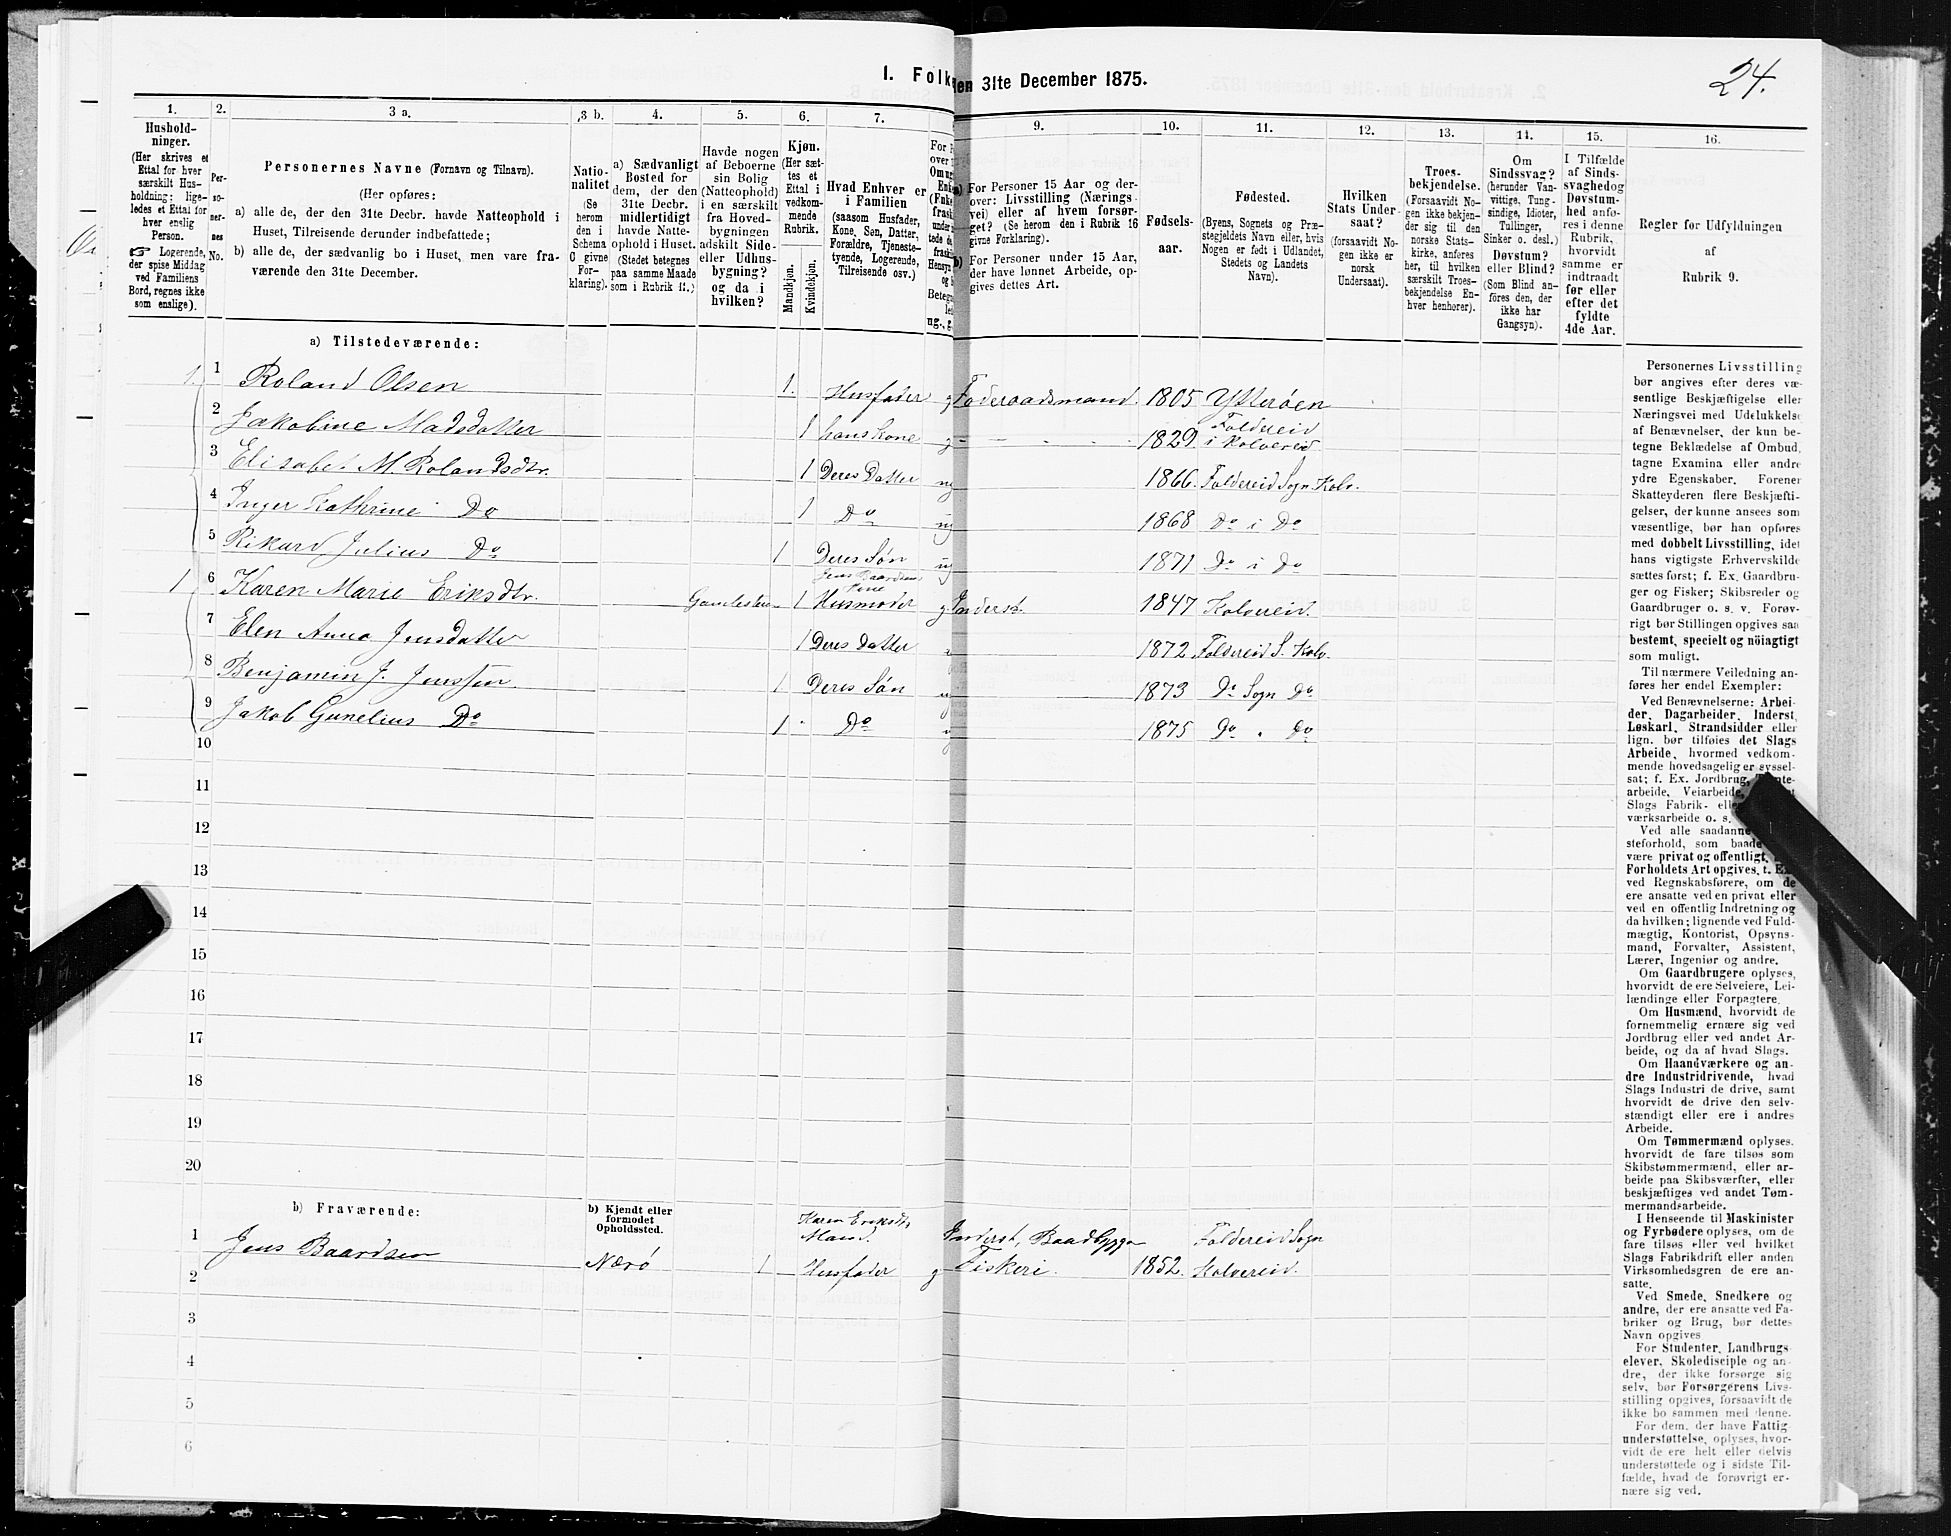 I. Folk
den 31te December 1875.
24.
1.
2.
3 a.
3 b.
4.
5.
6.
7.
9.
10.
11.
12.
13.
14.
15.
16.
Hushold-
ninger.
(Her skrives et
Ettal for hver
særskilt Hus-
holdning; lige-
ledes et Ettal for
hver enslig
Person.
☞ Logerende,
der spise Middag
ved Familiens
Bord, regnes ikke
som enslige).
Per-
so-
ner-
nes
No.
Personernes Navne (Fornavn og Tilnavn).
(Her opføres:
a) alle de, der den 31te Decbr. havde Natteophold i
Huset, Tilreisende derunder indbefattede;
b) alle de, der sædvanlig bo i Huset, men vare fra-
værende den 31te December.
Natio-
nalitet
(Se
herom
den i
Schema
C givne
For-
klaring).
a) Sædvanligt
Bosted for
dem, der den
31te Decbr.
midlertidigt
havde Natte-
ophold i Huset.
(Stedet betegnes
paa samme Maade
som i Rubrik 11.)
Havde nogen
af Beboerne
sin Bolig
(Natteophold)
i en særskilt
fra Hoved-
bygningen
adskilt Side-
eller Udhus-
bygning?
og da i
hvilken?
Kjøn.
(Her sæt-
tes et
Ettal i
vedkom-
mende
Rubrik.
Mandkjøn.
Kvindekjøn.
Hvad Enhver er
i Familien
(saasom Husfader,
Kone, Søn, Datter,
Forældre, Tjeneste-
tyende, Logerende,
Tilreisende osv.)
a) For Personer 15 Aar og der-
over: Livsstilling (Nærings-
vei) eller af hvem forsør-
get? (Se herom den i Rubrik 16
givne Forklaring).
b) For Personer under 15 Aar,
der have lønnet Arbeide, op-
gives dettes Art.
Fødsels-
aar.
Fødested.
(Byens, Sognets og Præ-
stegjeldets Navn eller, hvis
Nogen er født i Udlandet,
Stedets og Landets
Navn).
Hvilken
Stats Under-
saat?
(forsaavidt No-
gen ikke er
norsk
Undersaat).
Troes-
bekjendelse.
(Forsaavidt No-
gen ikke bekjen-
der sig til den
norske Stats-
kirke, anføres
her, til hvilken
særskilt Troes-
bekjendelse En-
hver henhører).
Om
Sindssvag?
(herunder Van-
vittige, Tung-
sindige, Idioter,
Tullinger,
Sinker o. desl.)
Døvstum?
eller Blind?
(Som Blind an-
føres den, der
ikke har
Gangsyn).
I Tilfælde
af Sinds-
svaghed og
Døvstum-
hed anfø-
res i denne
Rubrik,
hvorvidt
samme er
indtraadt
før eller
efter det
fyldte
4de Aar.
Regler før Udfyldningen
af
Rubrik 9.
a) Tilstedeværende:
1. 1 Roland Olsen 1. Husfader g Føderaadsmand. 1805 Ytterøen
2 Jakobine Madsdatter 1 hans kone g 1829. Foldereid i Kolvereid.
3 Elisabet M. Rolandsdtr. 1 Deres Datter ug 1866. Foldereid Sogn Kolv.
4 Inger Kathrine Do 1 Do ug 1868 Do i Do
5 Rikard Julius Do 1 Deres Søn ug 1871 Do i Do
1 6 Karen Marie Eriksdtr. 1 Jens Baardsens Kone Husmoder g Inderst. 1847 Kolvereid.
7 Elen Anna Jensdatter 1 Deres Datter 1872 Foldereid S. Kolv.
8 Benjamin J. Jenssen 1 Deres Søn 1873 Do Sogn Do
9 Jakob Gunelius Do 1 Do 1875 Do Do
10
11
12
13
14
15
16
17
18
19
20
b) Fraværende:
b) Kjendt eller
formodet
Opholdssted.
1 Jens Baardsen Nærø 1 Karen Eriksdtr Mand. Husfader g Inderst, Baadbygger Fiskeri. 1852. Foldereid Sogn Kolvereid.
2
3
4
5
6
Personernes Livsstilling
bør angives efter deres væ-
sentlige Beskjæftigelse eller
Næringsvei med Udelukkelse
af Benævnelser, der kun be-
tegne Beklædelse af Ombud,
tagne Examina eller andre
ydre Egenskaber. Forener
Skatteyderen flere Beskjæfti-
gelser, der kunne ansees som
væsentlige, bør han opføres
med dobbelt Livsstilling, idet
hans vigtigste Erhvervskilde
sættes først; f. Ex. Gaardbru-
ger og Fisker; Skibsreder og
Gaardbruger o. s. v. Forøv-
rigt bør Stillingen opgives saa
bestemt, specielt og nöiagtigt
som muligt.
Til nærmere Veiledning an-
føres her endel Exempler:
Ved Benævnelserne: Arbei-
der, Dagarbeider, Inderst,
Løskarl, Strandsidder eller
lign. bør tilføies det Slags
Arbeide, hvormed vedkom-
mende hovedsagelig er syssel-
sat; f. Ex. Jordbrug,
arbeide, Veiarbeide,
Slags Fabrik- eller
værksarbeide o. s.
Ved alle saadanne
steforhold, som baade
være privat og offentligt,
Forholdets Art opgives, t. Ex.
ved Regnskabsførere, om de
ere ansatte ved en privat eller
ved en offentlig Indretning og
da hvilken; lignende ved Fuld-
mægtig, Kontorist, Opsyns-
mand, Forvalter, Assistent,
Lærer, Ingeniør og andre.
Om Gaardbrugere oplyses,
hvorvidt de ere Selveiere, Lei-
lændinge eller Forpagtere.
Om Husmænd, hvorvidt de
fornemmelig ernære sig ved
Jordbrug eller ved andet Ar-
beide, og da af hvad Slags.
Om Haandværkere og an-
dre Industridrivende, hvad
Slags Industri de drive, samt
hvorvidt de drive den selv-
stændigt eller ere i andres
Arbeide.
Om Tømmermænd oplyses,
hvorvidt de fare tilsøs som
Skibstømmermænd, eller ar-
beide paa Skibsværfter, eller
beskjæftiges ved andet Tøm-
mermandsarbeide.
I Henseende til Maskinister
og Fyrbødere oplyses, om de
fare tilsøs eller ved hvilket
Slags Fabrikdrift eller anden
Virksomhedsgren de ere an-
satte.
Ved Smede, Snedkere og
andre, der ere ansatte ved Fa-
briker og Brug, bør dettes
Navn opgives
For Studenter, Landbrugs-
elever, Skoledisciple og an-
dre, der ikke forsørge sig
selv, bør Forsørgerens Livs-
stilling opgives, forsaavidt de
ikke bo sammen med denne.
For dem, der have Fattig-
understøttelse, oplyses, hvor-
vidt de ere helt eller delvis
understøttede og i sidste Til-
fælde, hvad de forøvrigt er-
nære sig ved.